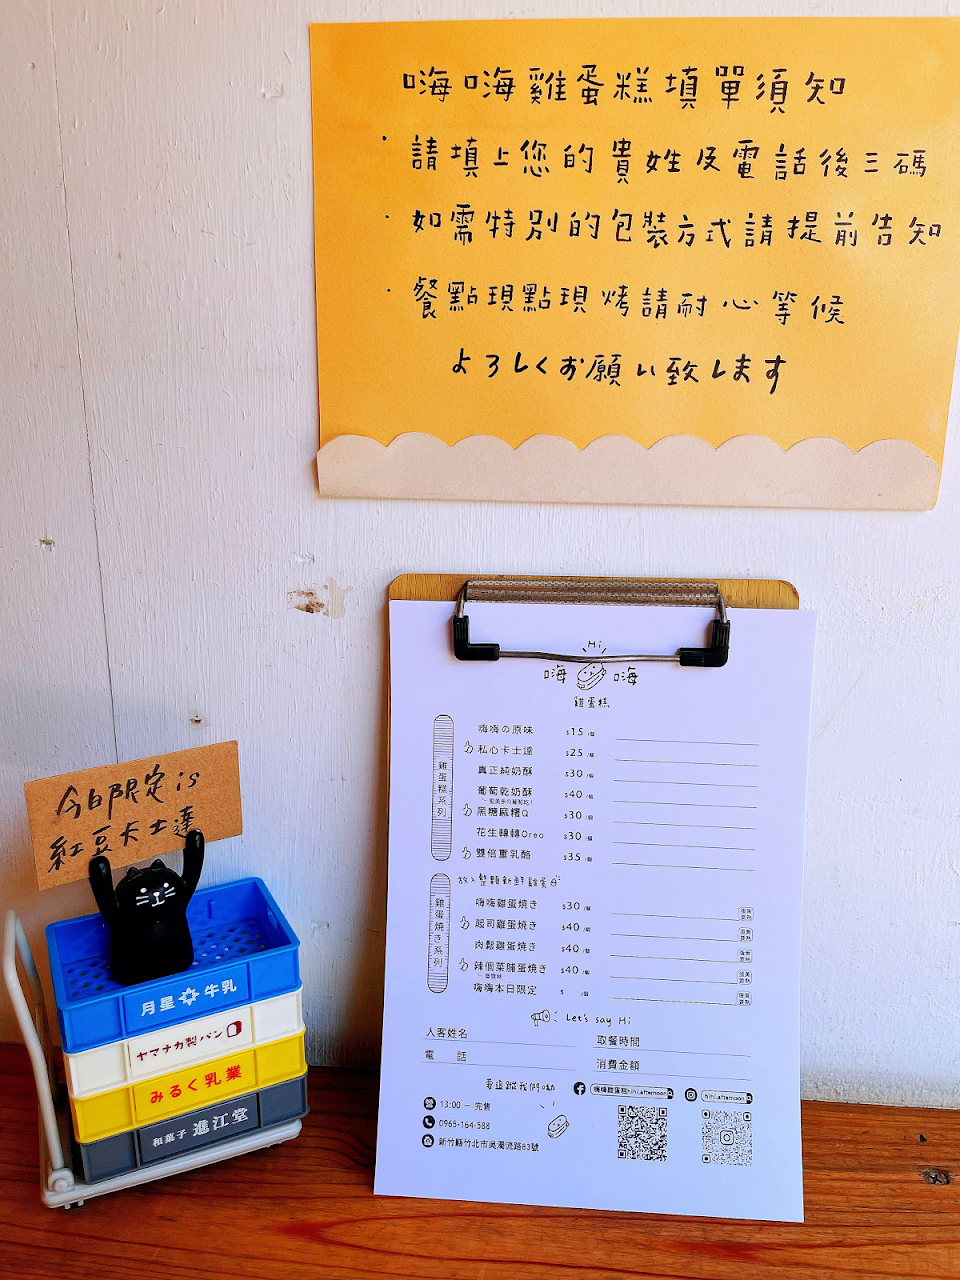 嗨嗨雞蛋糕填單須知
·請填上您的貴姓及電話後三碼
·如需特別的包裝方式請提前告知
·餐點現點現烤請耐心等候
よろしくお願い致します
Hi
嗨 嗨
雞蛋糕
雞蛋糕系列
嗨嗨の原味 $15 /個
私心卡士達 $25 /個
真正純奶酥 $30 /個
葡萄乾奶酥 $40 /個
黑糖麻糬Q $30 /個
花生轉轉Oreo $30 /個
雙倍重乳酪 $35 /個
雞蛋燒き系列
放入整顆新鮮雞蛋
嗨嗨雞蛋燒き $30 /個
起司雞蛋燒き $40 /個
肉鬆雞蛋燒き $40 /個
辣個菜脯蛋燒き $40 /個
嗨嗨本日限定 $ /個
Let's say Hi
人客姓名
取餐時間
電 話
消費金額
要追蹤我們呦
嗨嗨雞蛋糕hihi.afternoon
hihi.afternoon
13:00 — 完售
0965-164-588
新竹縣竹北市吳濁流路83號
今日限定 is
紅豆卡士達
月星 牛乳
ヤマナカ製パン
みるく乳業
和菓子 進江堂